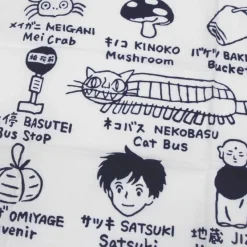 メイガニ MEIGANI
Mei Crab
キノコ KINOKO
Mushroom
バケツ
Bucket
停 BASUTEI
Bus Stop
ネコバス NEKOBASU
Cat Bus
OMIYAGE
サツキ SATSUKI
Satsuki
地蔵